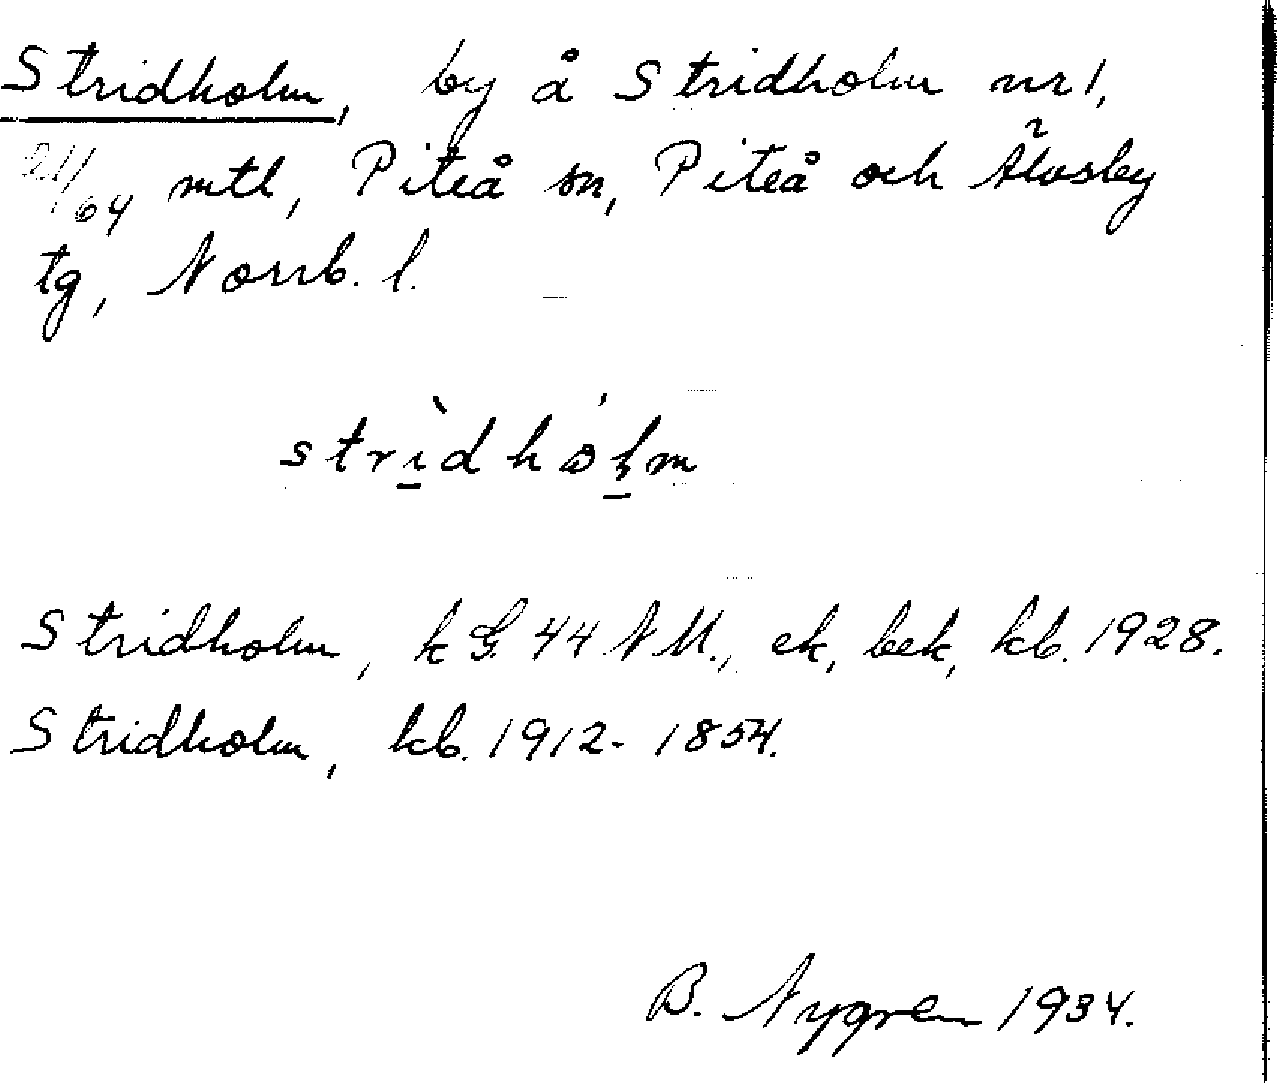 Stridholm, by å Stridholm nr 1,
21/64 mtl, Piteå sn, Piteå och Älvsby
tg, Norrb. l.
strìdhólm
Stridholm, kG 44 NM., ek, bek, kb. 1928.
Stridholm, kb. 1912 - 1854.
B. Nygren 1934.